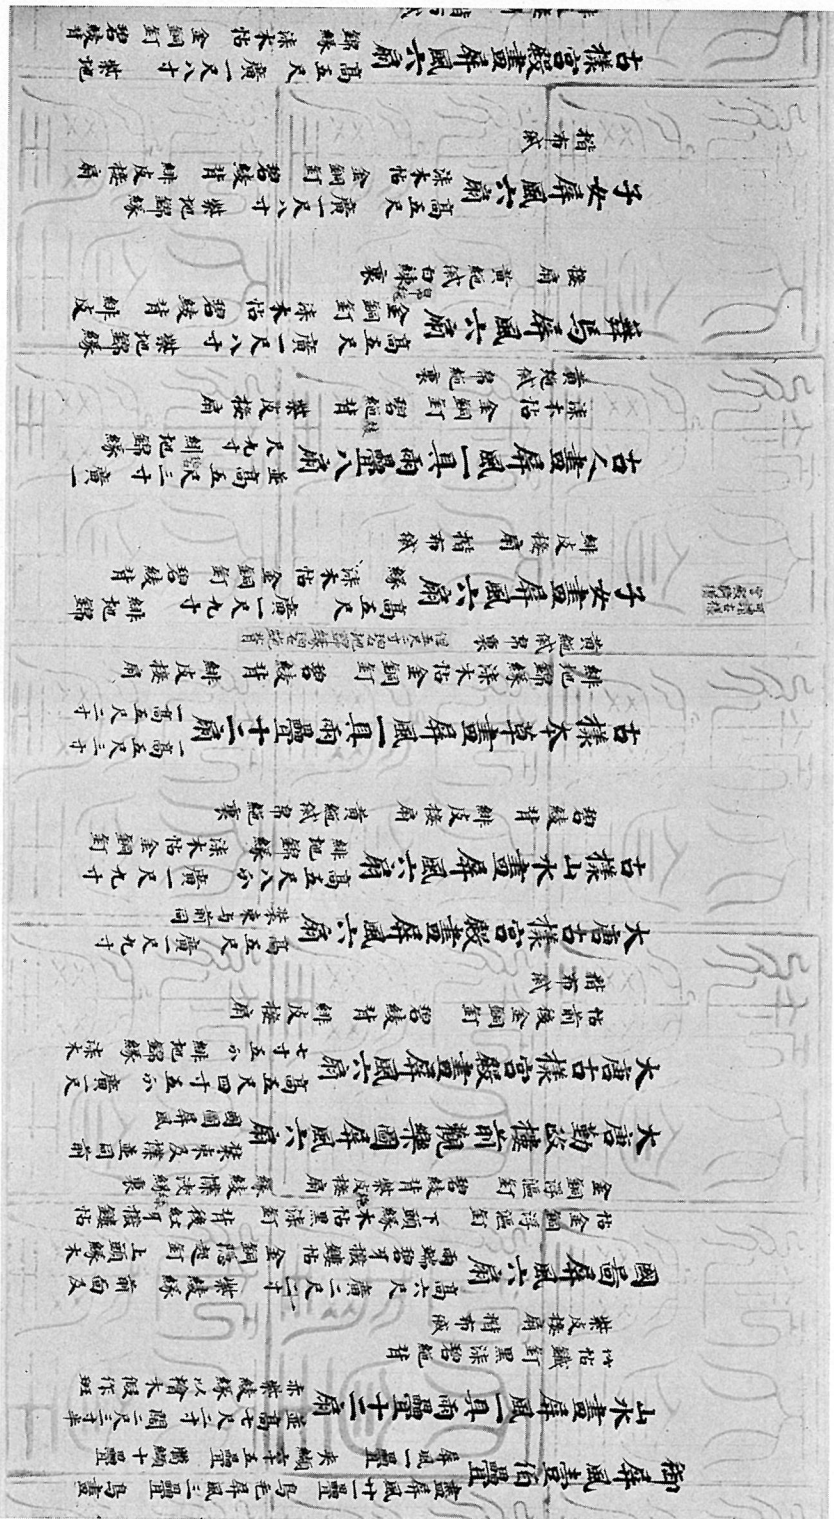 御屏風壹伯疊
畫屏風廿一疊 鳥毛屏風三疊 鳥畫
屏風一疊 夾纈六十五疊 臈纈十疊
山水畫屏風一具兩疊十二扇
並高七尺二寸闊二尺三寸半
赤紫綾緣以檜木假作班
竹帖鐵釘黑漆碧絁背
紫皮接扇揩布袋
國圖屏風六扇
高六尺廣二尺二寸紫綾緣前面及
兩端碧牙撥鏤帖金銅隱起釘上頭緣木
帖金銅浮漚釘下頭緣木帖黑漆釘背後紅牙撥鏤帖
金銅浮漚釘碧綾背皮接扇綠綾幞淺綠裏
大唐勤政樓前觀樂圖屏風六扇
裝束及幞並同前
國圖屏風
大唐古樣宮殿畫屏風六扇
高五尺四寸五分廣一尺
七寸五分緋地錦緣漆木
帖前後金銅釘碧綾背緋皮接扇
揩布袋
大唐古樣宮殿畫屏風六扇
高五尺廣一尺九寸
裝束與前同
古樣山水畫屏風六扇
高五尺八分廣一尺九寸
緋地錦緣漆木帖金銅釘
碧綾背緋皮接扇黃絁袋帛絁裏
古樣本草畫屏風一具兩疊十二扇
一高五尺三寸
一高五尺二寸
緋地錦緣漆木帖金銅釘碧綾背緋皮接扇
黃絁袋帛裏
子女畫屏風六扇
高五尺廣一尺九寸緋地錦
緣漆木帖金銅釘碧綾背
緋皮接扇揩布袋
古人畫屏風一具兩疊八扇
並高五尺三寸廣一
尺九寸緋地錦緣
漆木帖金銅釘碧絁背紫皮接扇
黃絁袋帛絁裏
舞馬屏風六扇
高五尺廣一尺八寸紫地錦緣
金銅釘漆木帖碧綾背緋皮
接扇黃絁袋白練裏
子女屏風六扇
高五尺廣一尺八寸紫地錦緣
漆木帖金銅釘碧綾背緋皮接扇
揩布袋
古樣宮殿畫屏風六扇
高五尺廣一尺八寸紫地
錦緣漆木帖金銅釘碧綾背